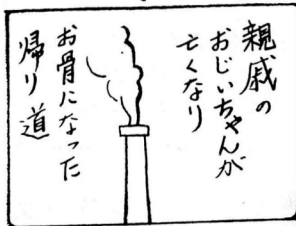 親戚の
おじいちゃんが
亡くなり
お骨になった
帰り道